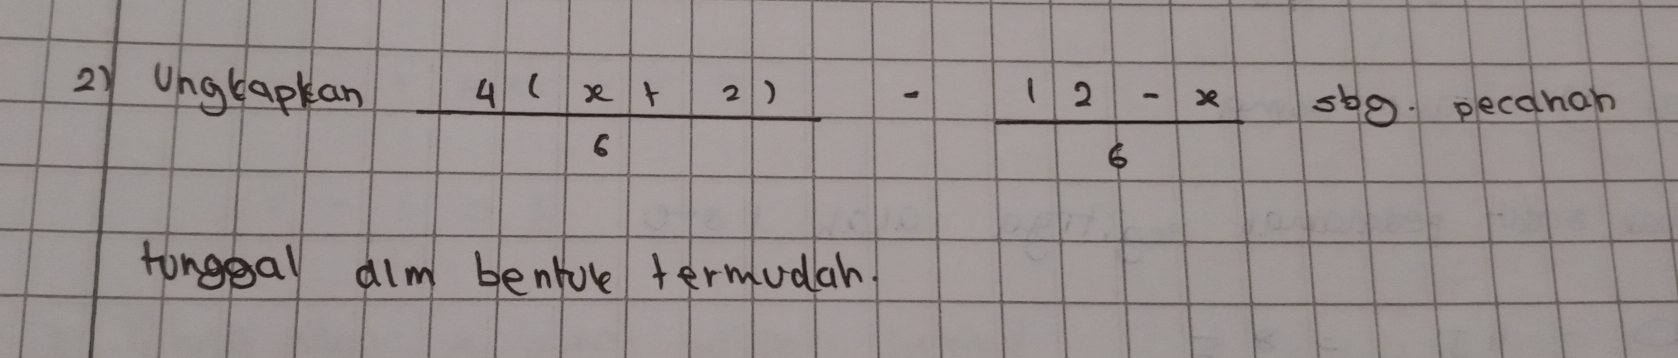 2) Ungkapkan 4(x + 2)/6 - 12 - x/6 sbg. pecahan
tunggal dlm bentuk termudah.